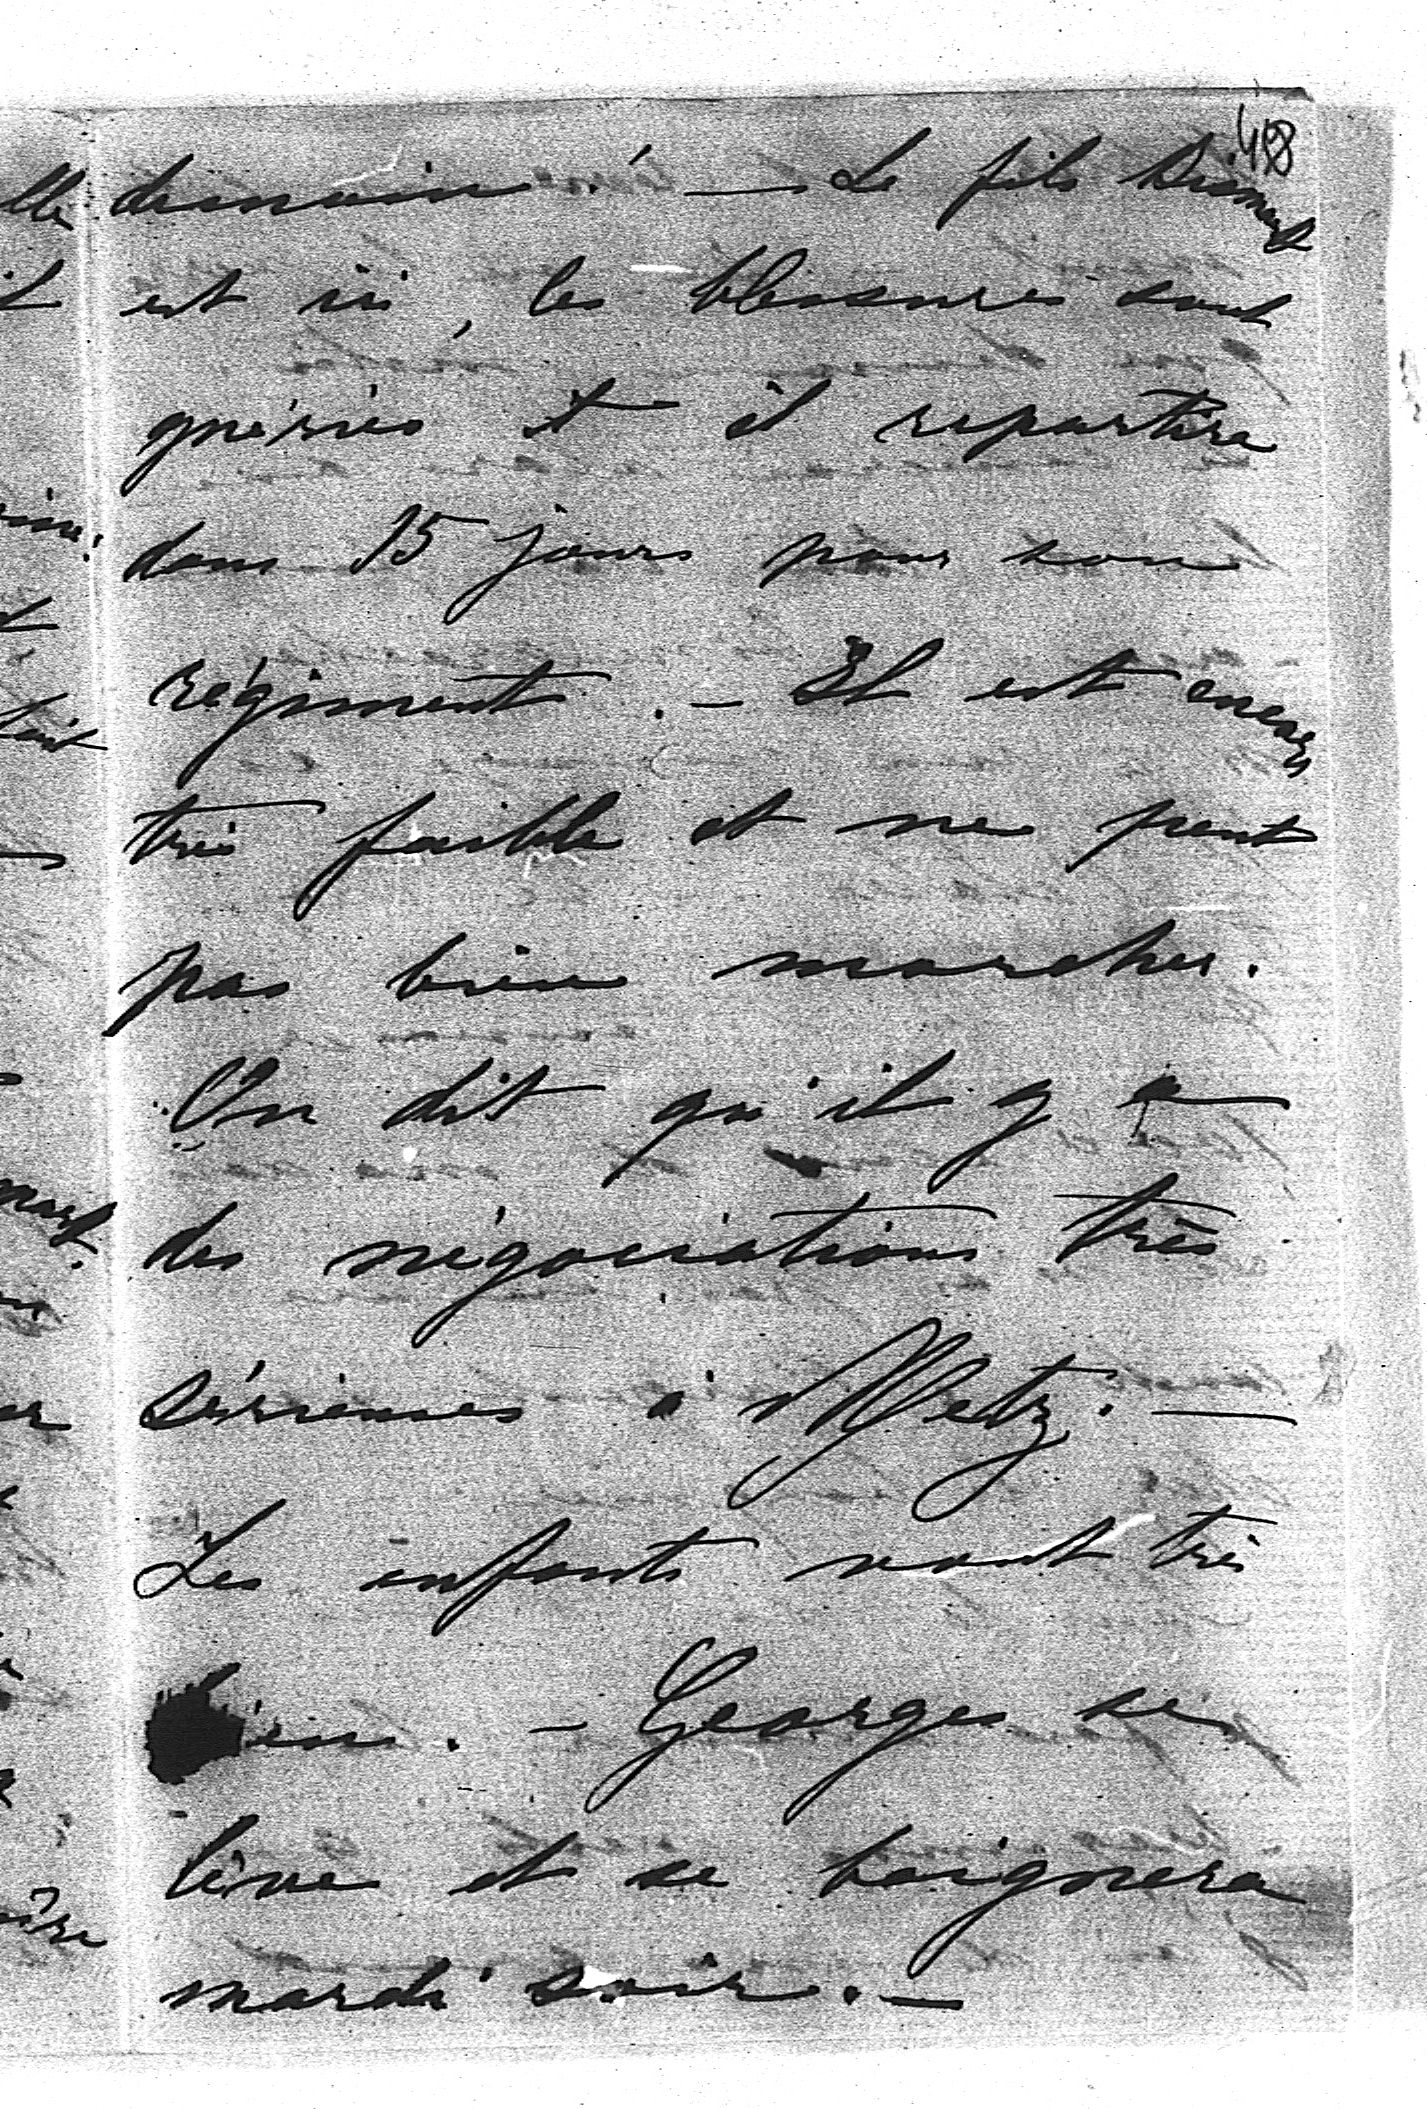 418
demain ! — Le fils Bismark
est ici, les blessures sont
guéries et il repartira
dans 15 jours pour son
régiment. — Il est encore
très faible et ne peut
pas bien marcher.
On dit qu'il y a
des négociations très
sérieuses à Metz. —
Les enfants vont très
bien. — Georges se
lève et se baignera
mardi soir. —